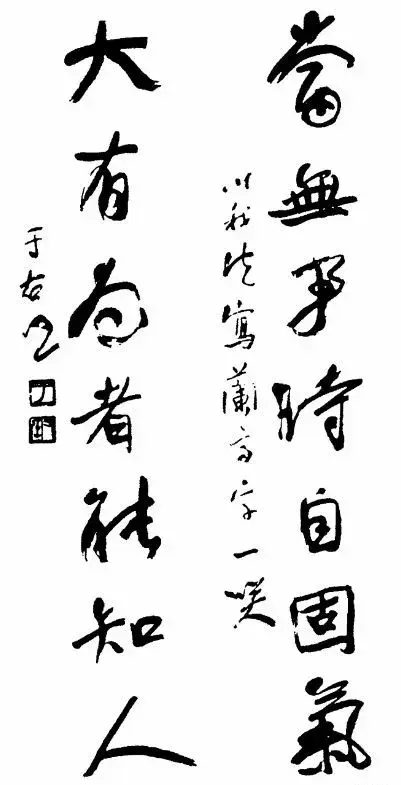 當無事時自固氣
以我法寫蘭亭字一咲
大有為者能知人
于右任